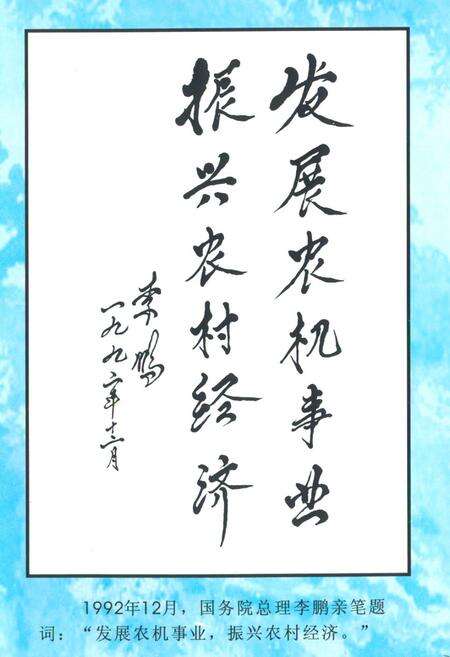 发展农机事业
振兴农村经济
李鹏
一九九二年十二月
1992年12月，国务院总理李鹏亲笔题
词：“发展农机事业，振兴农村经济。”